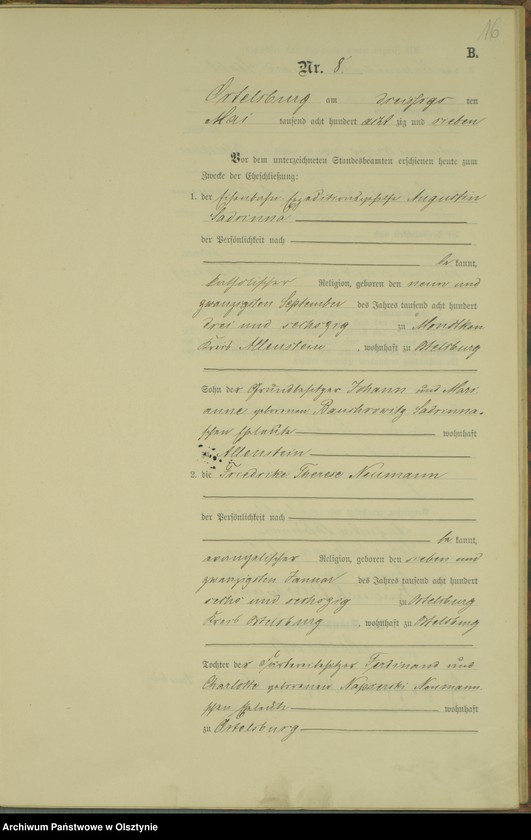 16
B.
Nr. 8.
Ortelsburg am dreißigs ten
Mai tausend acht hundert acht zig und sieben
Vor dem unterzeichneten Standesbeamten erschienen heute zum
Zwecke der Eheschließung:
1. der Eisenbahn Expeditionsgehilfe Augustin
Sadrinna
der Persönlichkeit nach
be kannt,
katholischer Religion, geboren den neun und
zwanzigsten September des Jahres tausend acht hundert
drei und sechszig zu
Kreis Allenstein, wohnhaft zu Ortelsburg
Sohn der Grundbesitzer Johann und Mari
anne geborenen Sadrinna-
schen Eheleute wohnhaft
zu Allenstein
2. die Friederike Therese Neumann
der Persönlichkeit nach
be kannt,
evangelischer Religion, geboren den sieben und
zwanzigsten Januar des Jahres tausend acht hundert
sechs und sechszig zu Ortelsburg
Kreis Ortelsburg, wohnhaft zu Ortelsburg
Tochter der Gärtnereibesitzer Ferdinand und
Charlotte geborenen Neumann
schen Eheleute wohnhaft
zu Ortelsburg
Archiwum Państwowe w Olsztynie